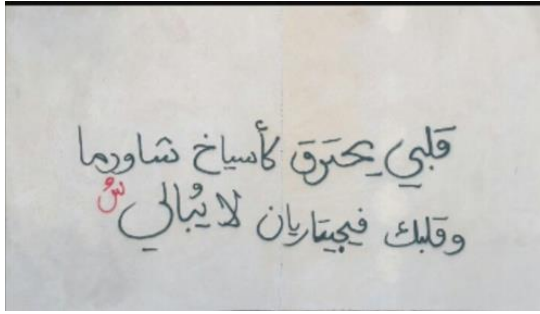 قلبي يحترق كأسياخ شاورما
وقلبك فيجيتاريان لا يُبالي